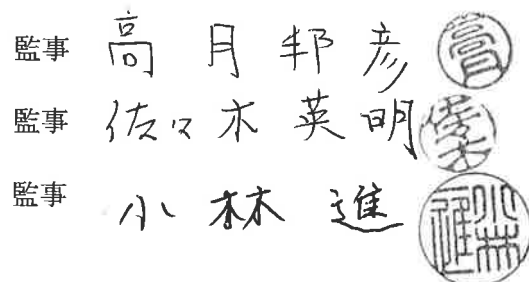 監事 高月邦彦 高月
監事 佐々木英明 佐々木
監事 小林進 小林進